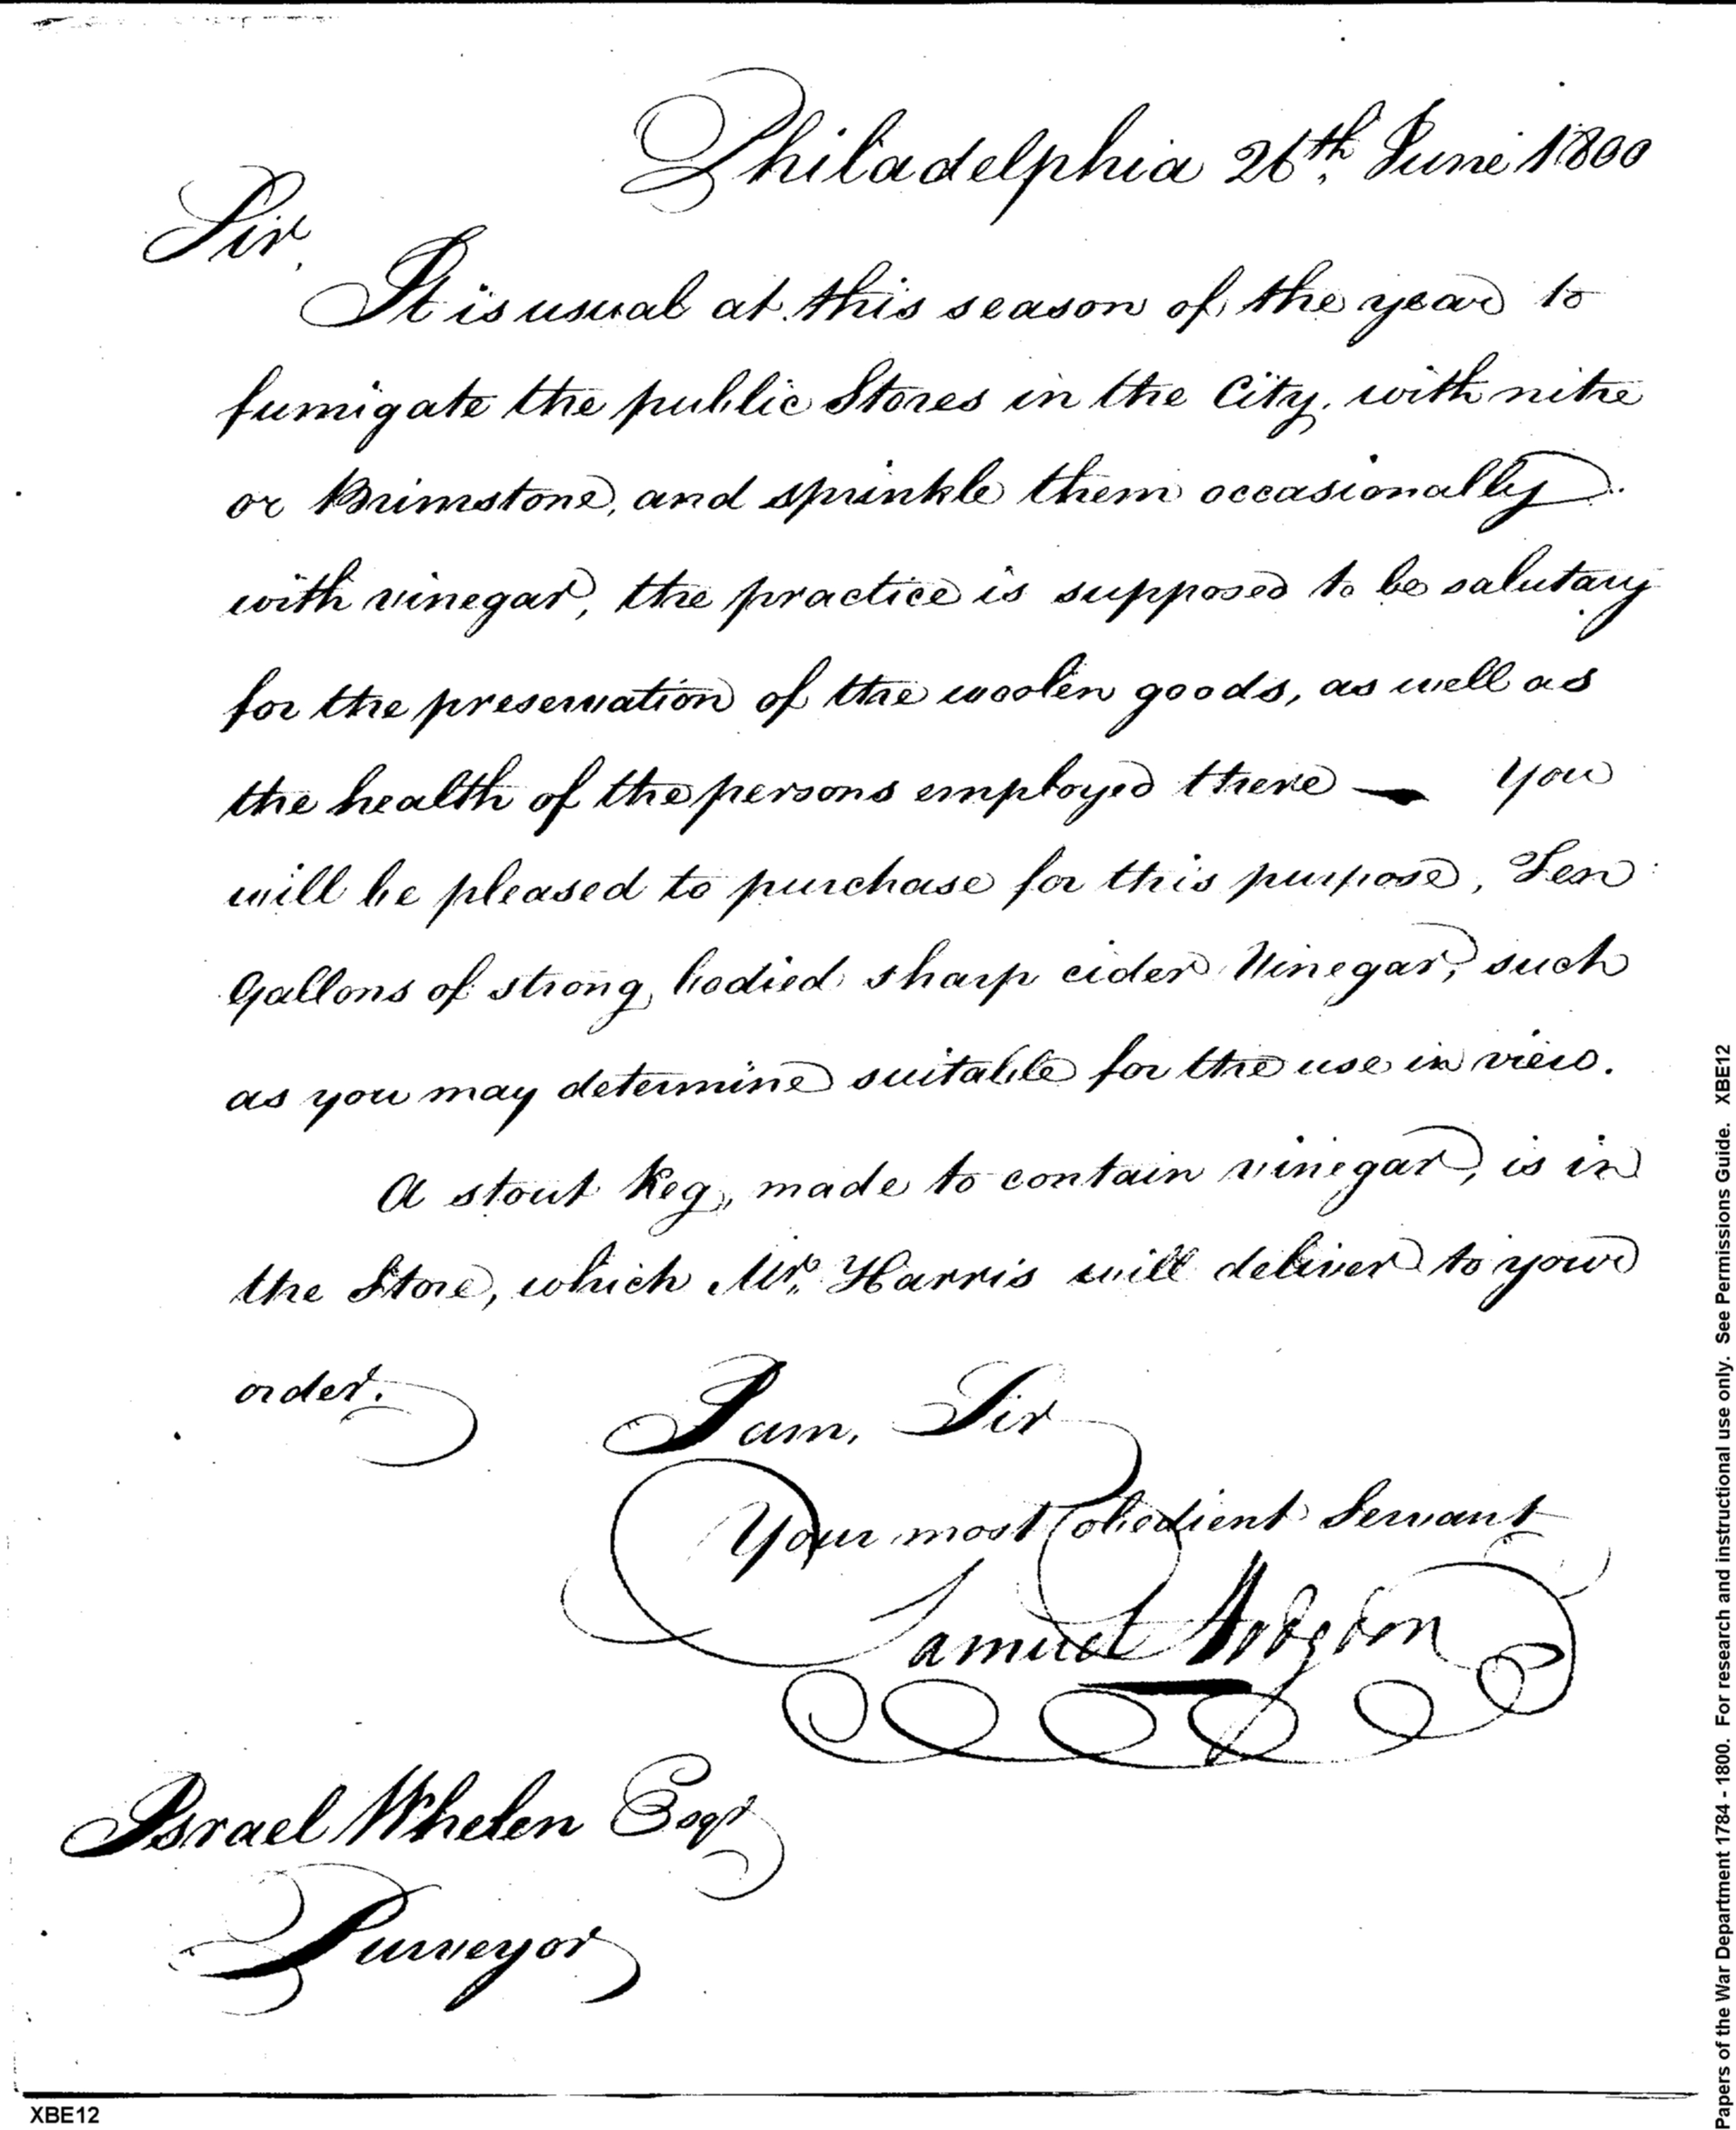 Philadelphia 26th June 1800
Sir,
It is usual at this season of the year to
fumigate the public Stores in the City, with nitre
or Brimstone, and sprinkle them occasionally
with vinegar, the practice is supposed to be salutary
for the preservation of the woolen goods, as well as
the health of the persons employed there — You
will be pleased to purchase for this purpose, Ten
Gallons of strong bodied sharp cider Vinegar, such
as you may determine suitable for the use in view.
A stout Keg, made to contain vinegar, is in
the Store, which Mr. Harris will deliver to your
order.
I am, Sir
Your most obedient Servant
Samuel Hodgdon
Israel Whelen Esqr
Purveyor
XBE12
Papers of the War Department 1784 - 1800. For research and instructional use only. See Permissions Guide. XBE12